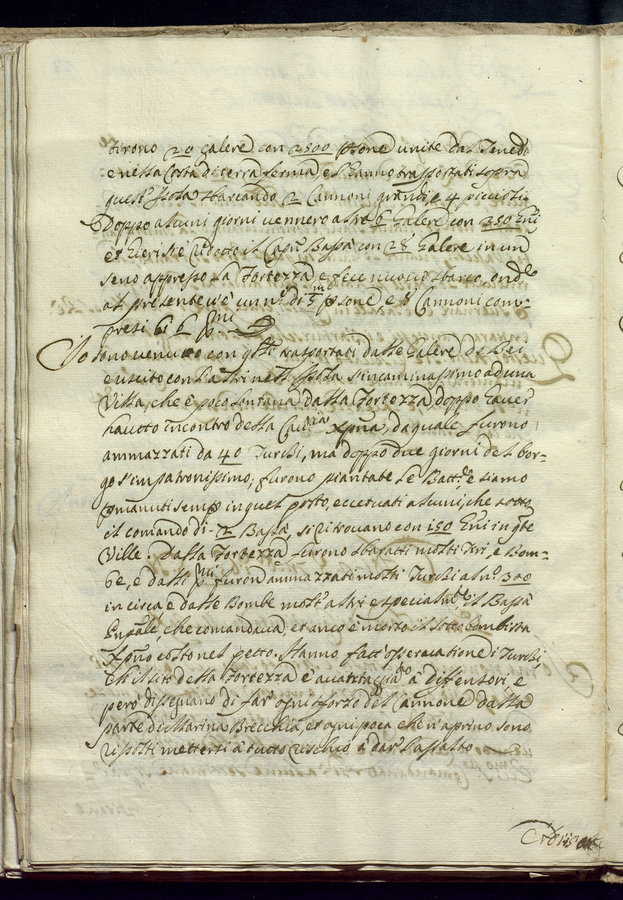 tirono 20 galere con 2500 psone unite dal Tenedo
e nella Costa di terra ferma, e l'hanno trasportati sopra
quest'Isola sbarcando 2 Cannoni grandi, e 4 piccioli.
Doppo alcuni giorni vennero altre 6 Galere con 350
et si è ridotto il Capn Bassà con 28 Galere in un
seno appresso la Fortezza, e fece nuovo sbarco, onde
al presente v'è un nº di 5 psone e 8 Cannoni com-
presi li 6 pmi
Io sono venuto con qsti trasportati dalle Galere de Bei
e uscito con altri nell'Isola s'incaminassimo ad una
Villa, che è poco lontana dalla Fortezza, doppo haver
havuto incontro della Cavria Xpna, da quale furono
ammazzati da 40 Turchi, ma doppo due giorni del bor-
go s'impatronissimo, furono piantate le Battie e siamo
pmanuti semp in quel posto, eccetuati alcuni, che sotto
il comando di 2 Bassà, si ritrovano con 150 in qste
Ville. Dalla Fortezza furono sbarati molti tiri, e Bom-
be, e dalli pmi furon ammazzati molti Turchi al nº 300
in circa e dalle Bombe molt'altri e specialmte il Bassà
che comandava, et anco è morto il sotto
Xpno colto nel petto. Hanno fatt'operatione i Turchi,
il sito della Fortezza è avantaggdo à diffensori e
però disegnano di far ogni sforzo del Cannone dalla
parte di Marina Brecchia, et ogni poca che n'aprino sono
risolti mettersi à tutto rischio à dar l'assalto.